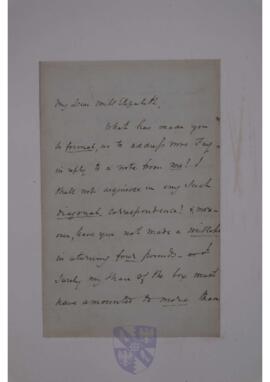 My dear Miss Elizabeth,
What has made you
so formal, as to address Mrs Tay-
in reply to a note from me? I
shall not acquiesce in any such
diagonal correspondence! & more-
over, have you not made a mistake
in returning four pounds -
Surely my share of the box must
have amounted to more than